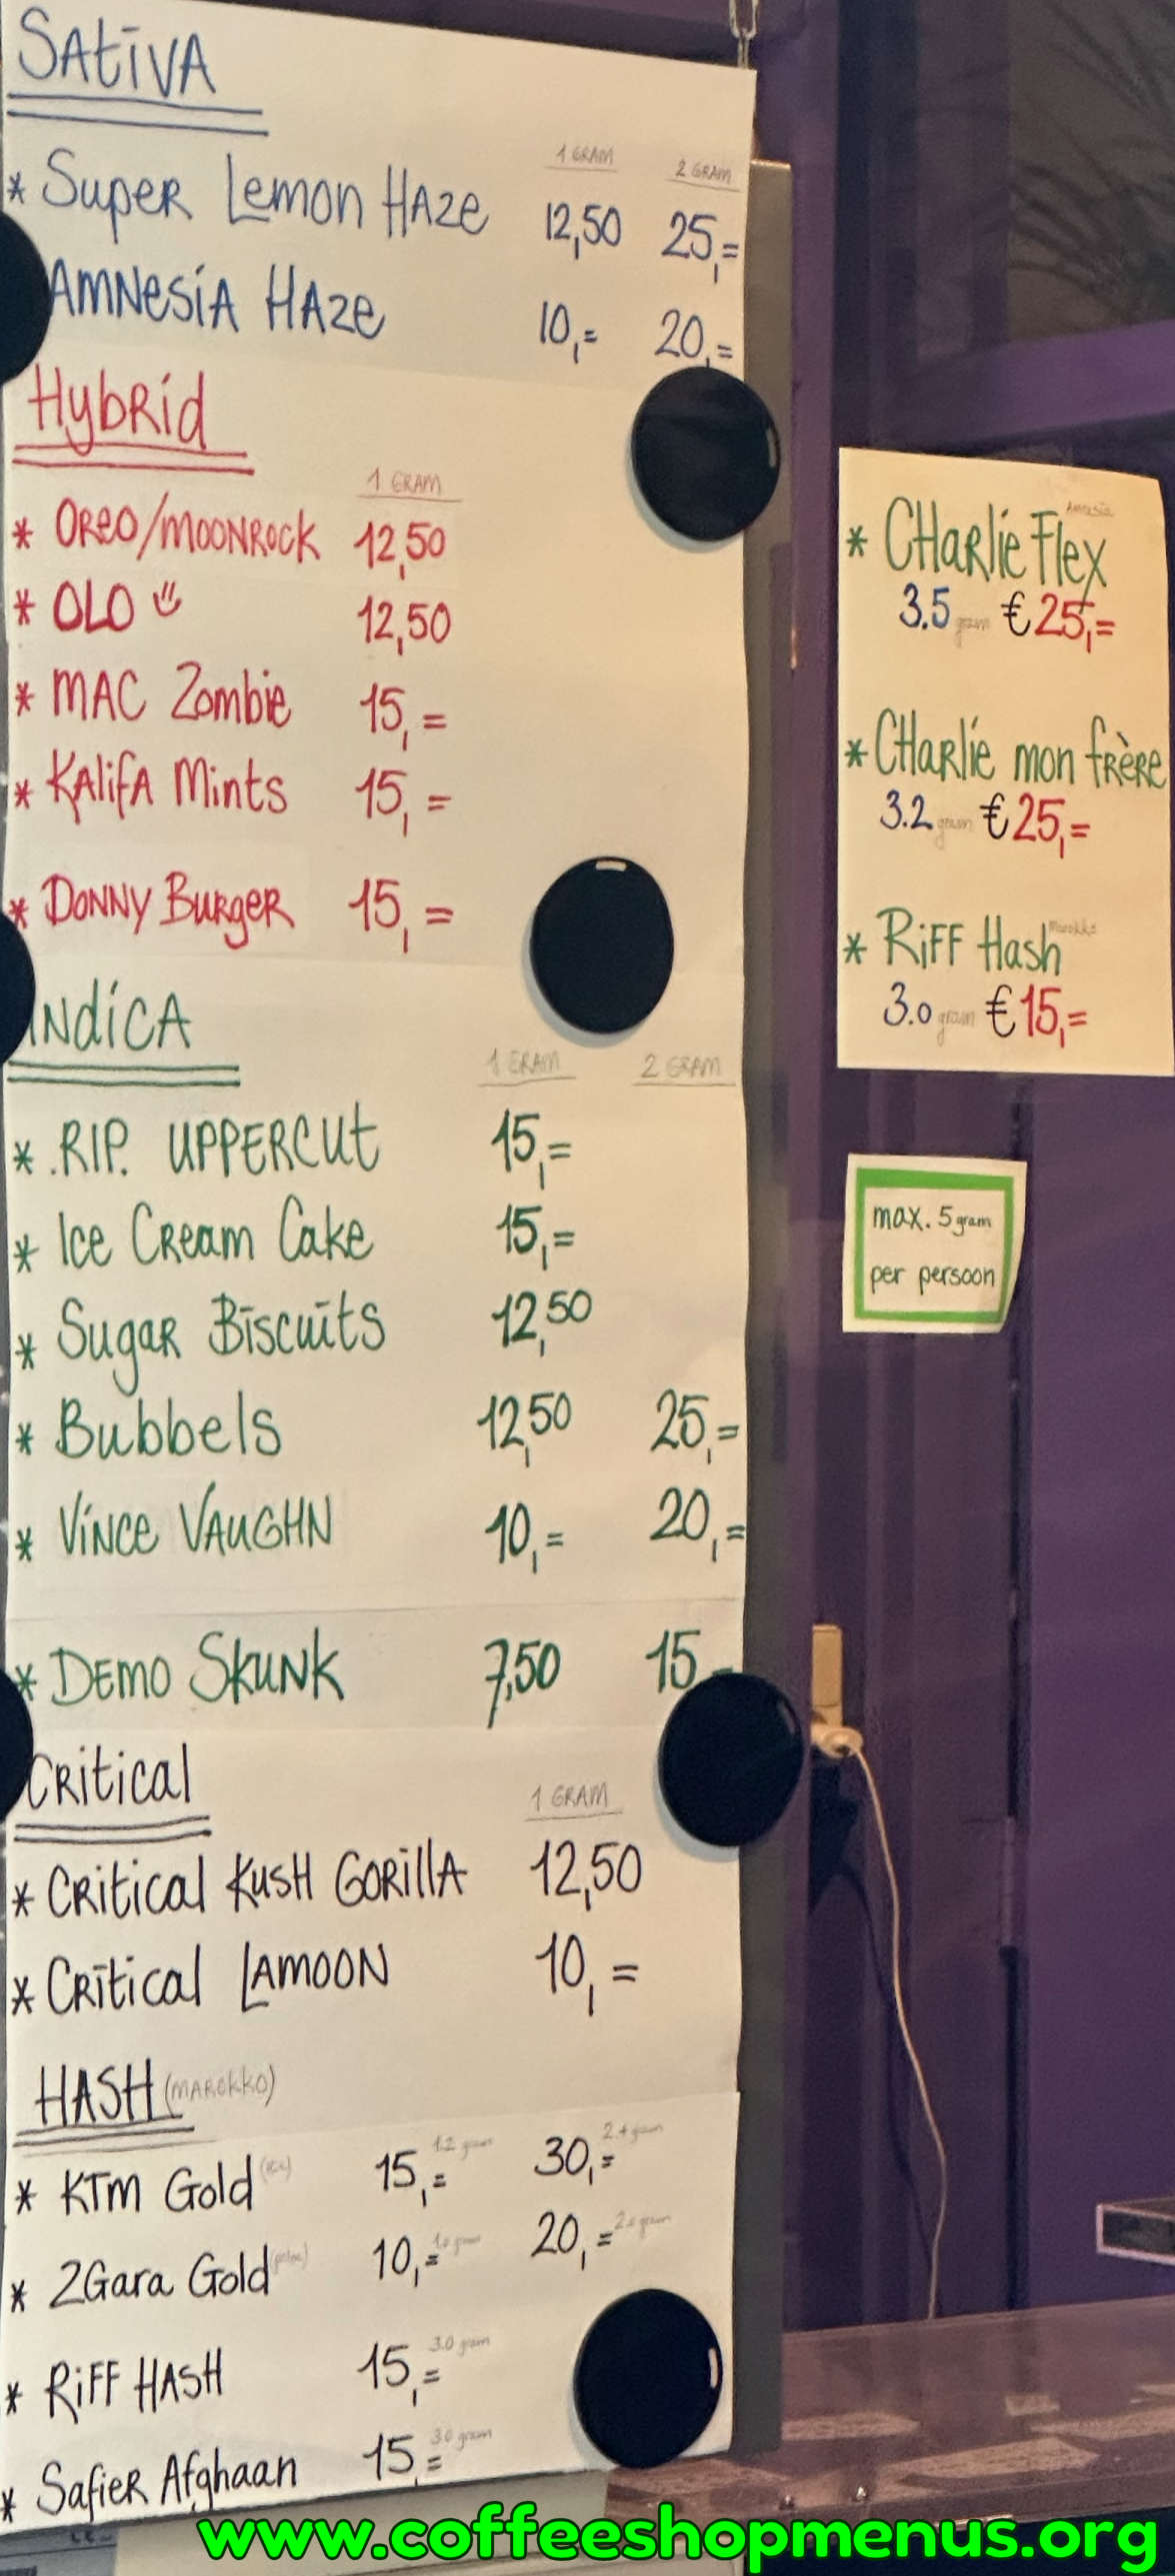 SAtiVA
1 GRAM 2 GRAM
* Super Lemon Haze 12,50 25,=
AMNesiA HAze 10,= 20,=
Hybrid
1 GRAM
* OReo/MOONROCK 12,50
* OLO 12,50
* MAC Zombie 15,=
* KAlifA Mints 15,=
* DONNY BURgeR 15,=
INdiCA
1 GRAM 2 GRAM
* .RIP. UPPERCUt 15,=
* Ice CReam Cake 15,=
* SugaR Biscuits 12,50
* Bubbels 12,50 25,=
* ViNCe VAUGHN 10,= 20,=
* DEMO SKUNK 7,50 15
CRitical
1 GRAM
* CRitical KUSH GORillA 12,50
* CRitical LAMOON 10,=
HASH (MAROKKO)
* KTM Gold 15,= 1.2 gram 30,= 2.4 gram
* 2Gara Gold 10,= 1.0 gram 20,= 2.0 gram
* RiFF HASH 15,= 3.0 gram
* SafieR Afghaan 15,= 3.0 gram
* CHaRlie Flex Amnesia
3.5 gram €25,=
* CHaRlie mon fRère
3.2 gram €25,=
* RiFF Hash Marokko
3.0 gram €15,=
max. 5 gram
per persoon
www.coffeeshopmenus.org